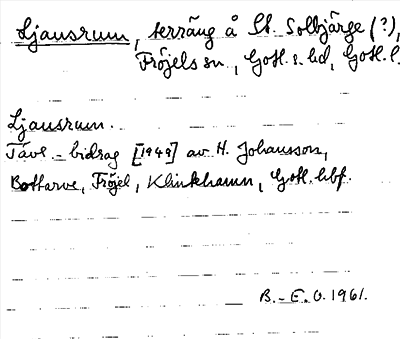 Ljausrum, terräng å St. Solbjärge (?),
Fröjels sn, Gotl. s. hd, Gotl. l.
Ljausrum.
Tävl.-bidrag [1949] av H. Johansson,
Bottarve, Fröjel, Klinkhamn, Gotl. hbf.
B.-E. O. 1961.